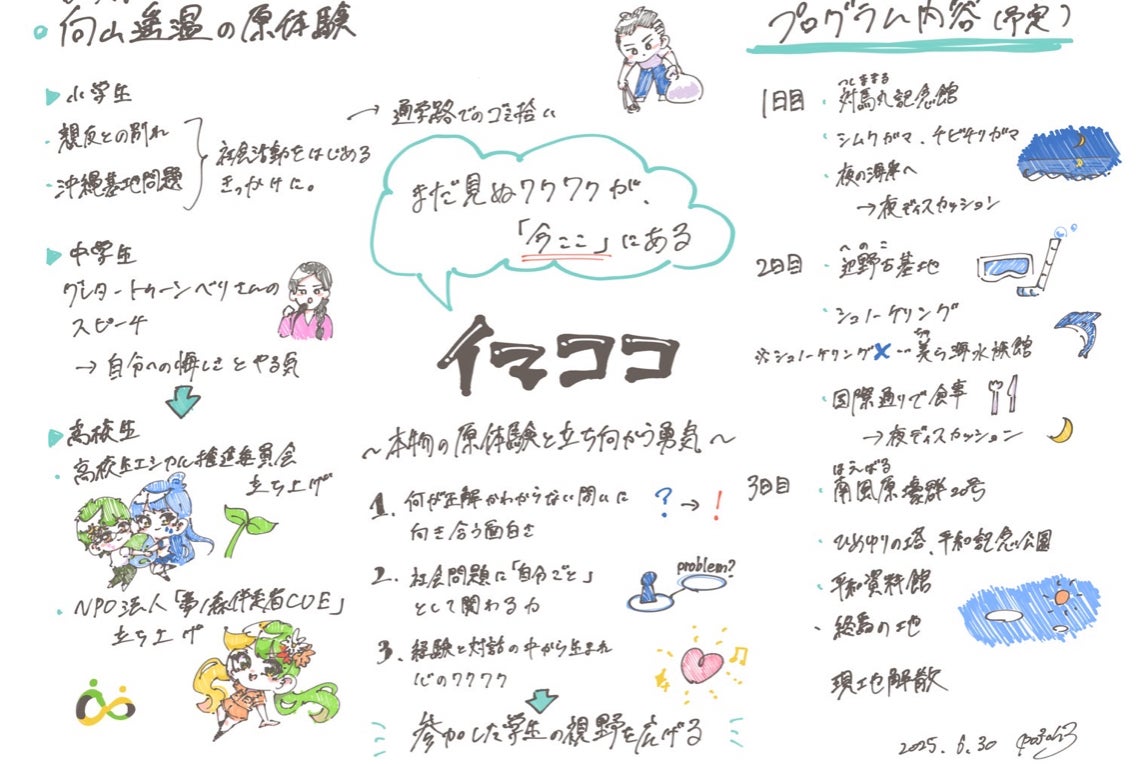 向山遥温の原体験
小学生
・親友との別れ
・沖縄基地問題
社会活動をはじめる
きっかけに。
→ 通学路でのゴミ拾い
中学生
グレタ・トゥーンベリさんの
スピーチ
→ 自分への悔しさとやる気
高校生
・高校生エシカル推進委員会
立ち上げ
・NPO法人「夢ノ森伴走者CUE」
立ち上げ
まだ見ぬワクワクが、
「今ここ」にある
イマココ
〜本物の原体験と立ち向かう勇気〜
1. 何が正解かわからない問いに
向き合う面白さ
? → !
2. 社会問題に「自分ごと」
として関わる力
problem?
3. 経験と対話の中から生まれ
心のワクワク
参加した学生の視野を広げる
プログラム内容(予定)
1日目
つしままる
・対馬丸記念館
・シムクガマ、チビチリガマ
・夜の海岸へ
→夜ディスカッション
2日目
へのこ
・辺野古基地
・シュノーケリング
※シュノーケリング×…美ら海水族館
ちゅ
・国際通りで食事
→夜ディスカッション
3日目
はえばる
・南風原壕群20号
・ひめゆりの塔、平和記念公園
・平和資料館
・終焉の地
現地解散
2025. 6. 30